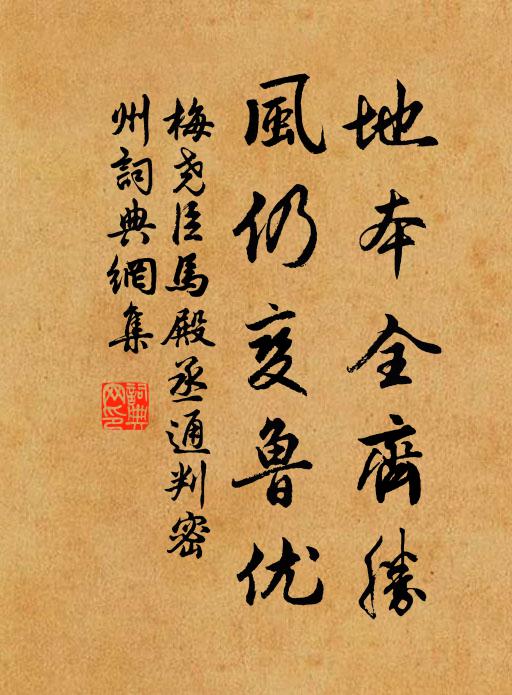 地本全齊勝
風仍变魯优
梅尧臣馬殿丞通判密
州詞典網集
詞典
网印